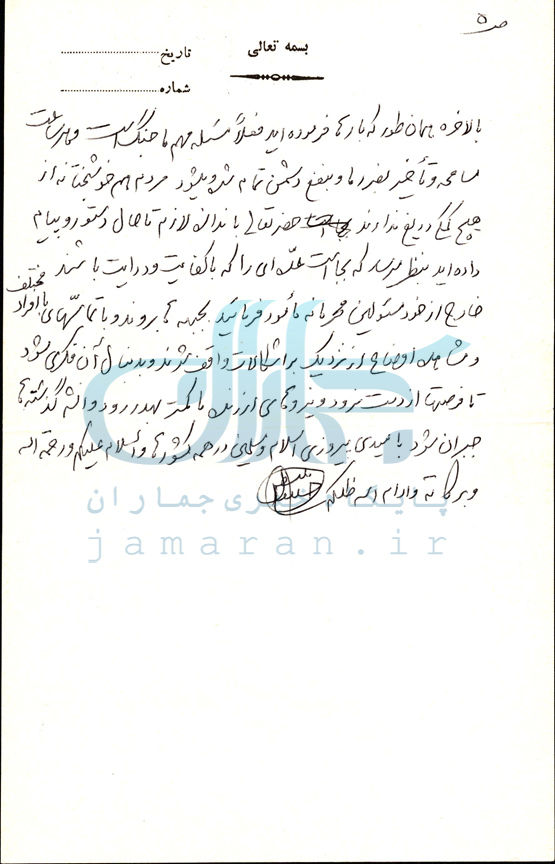 ص ۵
بسمه تعالی
تاریخ
شماره
بالاخره همان طور که بارها فرموده اید فعلاً مسئله مهم ما جنگ است و هر ساعت
مسامحه و تأخیر بضرر ما و بنفع دشمن تمام شده و میشود مردم هم خوشبختانه از
هیچ کمکی دریغ ندارند حضرتعالی باندازه لازم تا حال دستور و پیام
داده اید بنظر میرسد که بجا است عده ای را که با کفایت و درایت باشند
خارج از خود مسئولین محرمانه مأمور فرمائید بجبهه ها بروند و با تماسهای با افراد مختلف
و مشاهده اوضاع از نزدیک بر اشکالات واقف شوند و بدنبال آن فکری بشود
تا فرصتها از دست نرود و نیروهای ارزنده ما کمتر بهدر رود و انشاء الله گذشته ها
جبران شود با امیدی پیروزی اسلام و مسلمین در همه کشورها والسلام علیکم و رحمة الله
و برکاته و ادام الله ظلکم
پایگاه خبری جماران
jamaran.ir